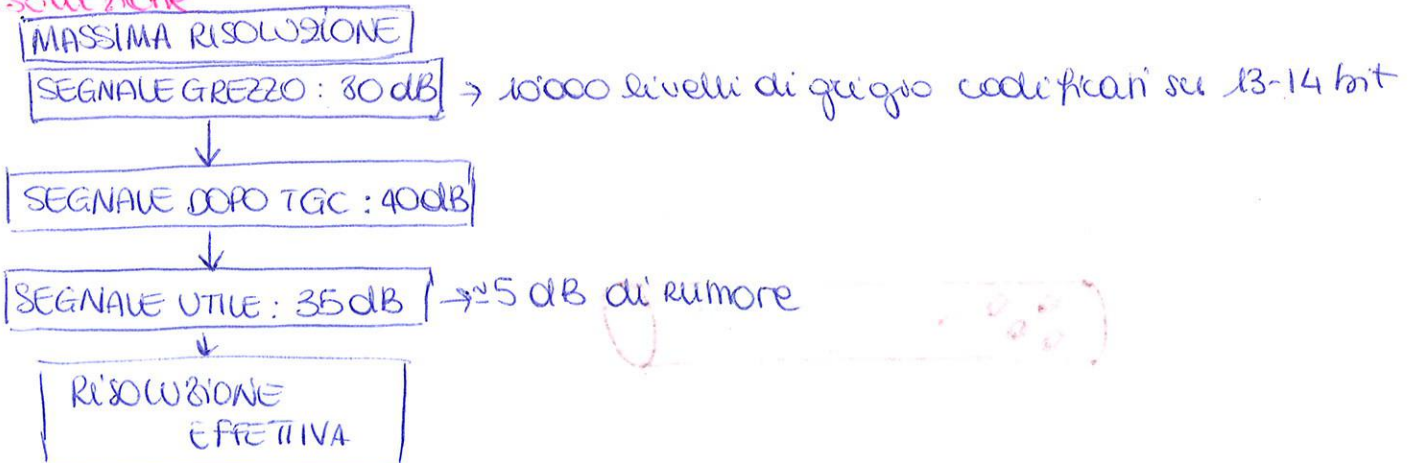 MASSIMA RISOLUZIONE
SEGNALE GREZZO: 80 dB → 10'000 livelli di grigio codificati su 13-14 bit
↓
SEGNALE DOPO TGC: 40dB
↓
SEGNALE UTILE: 35dB →≃5 dB di rumore
↓
RISOLUZIONE
EFFETTIVA